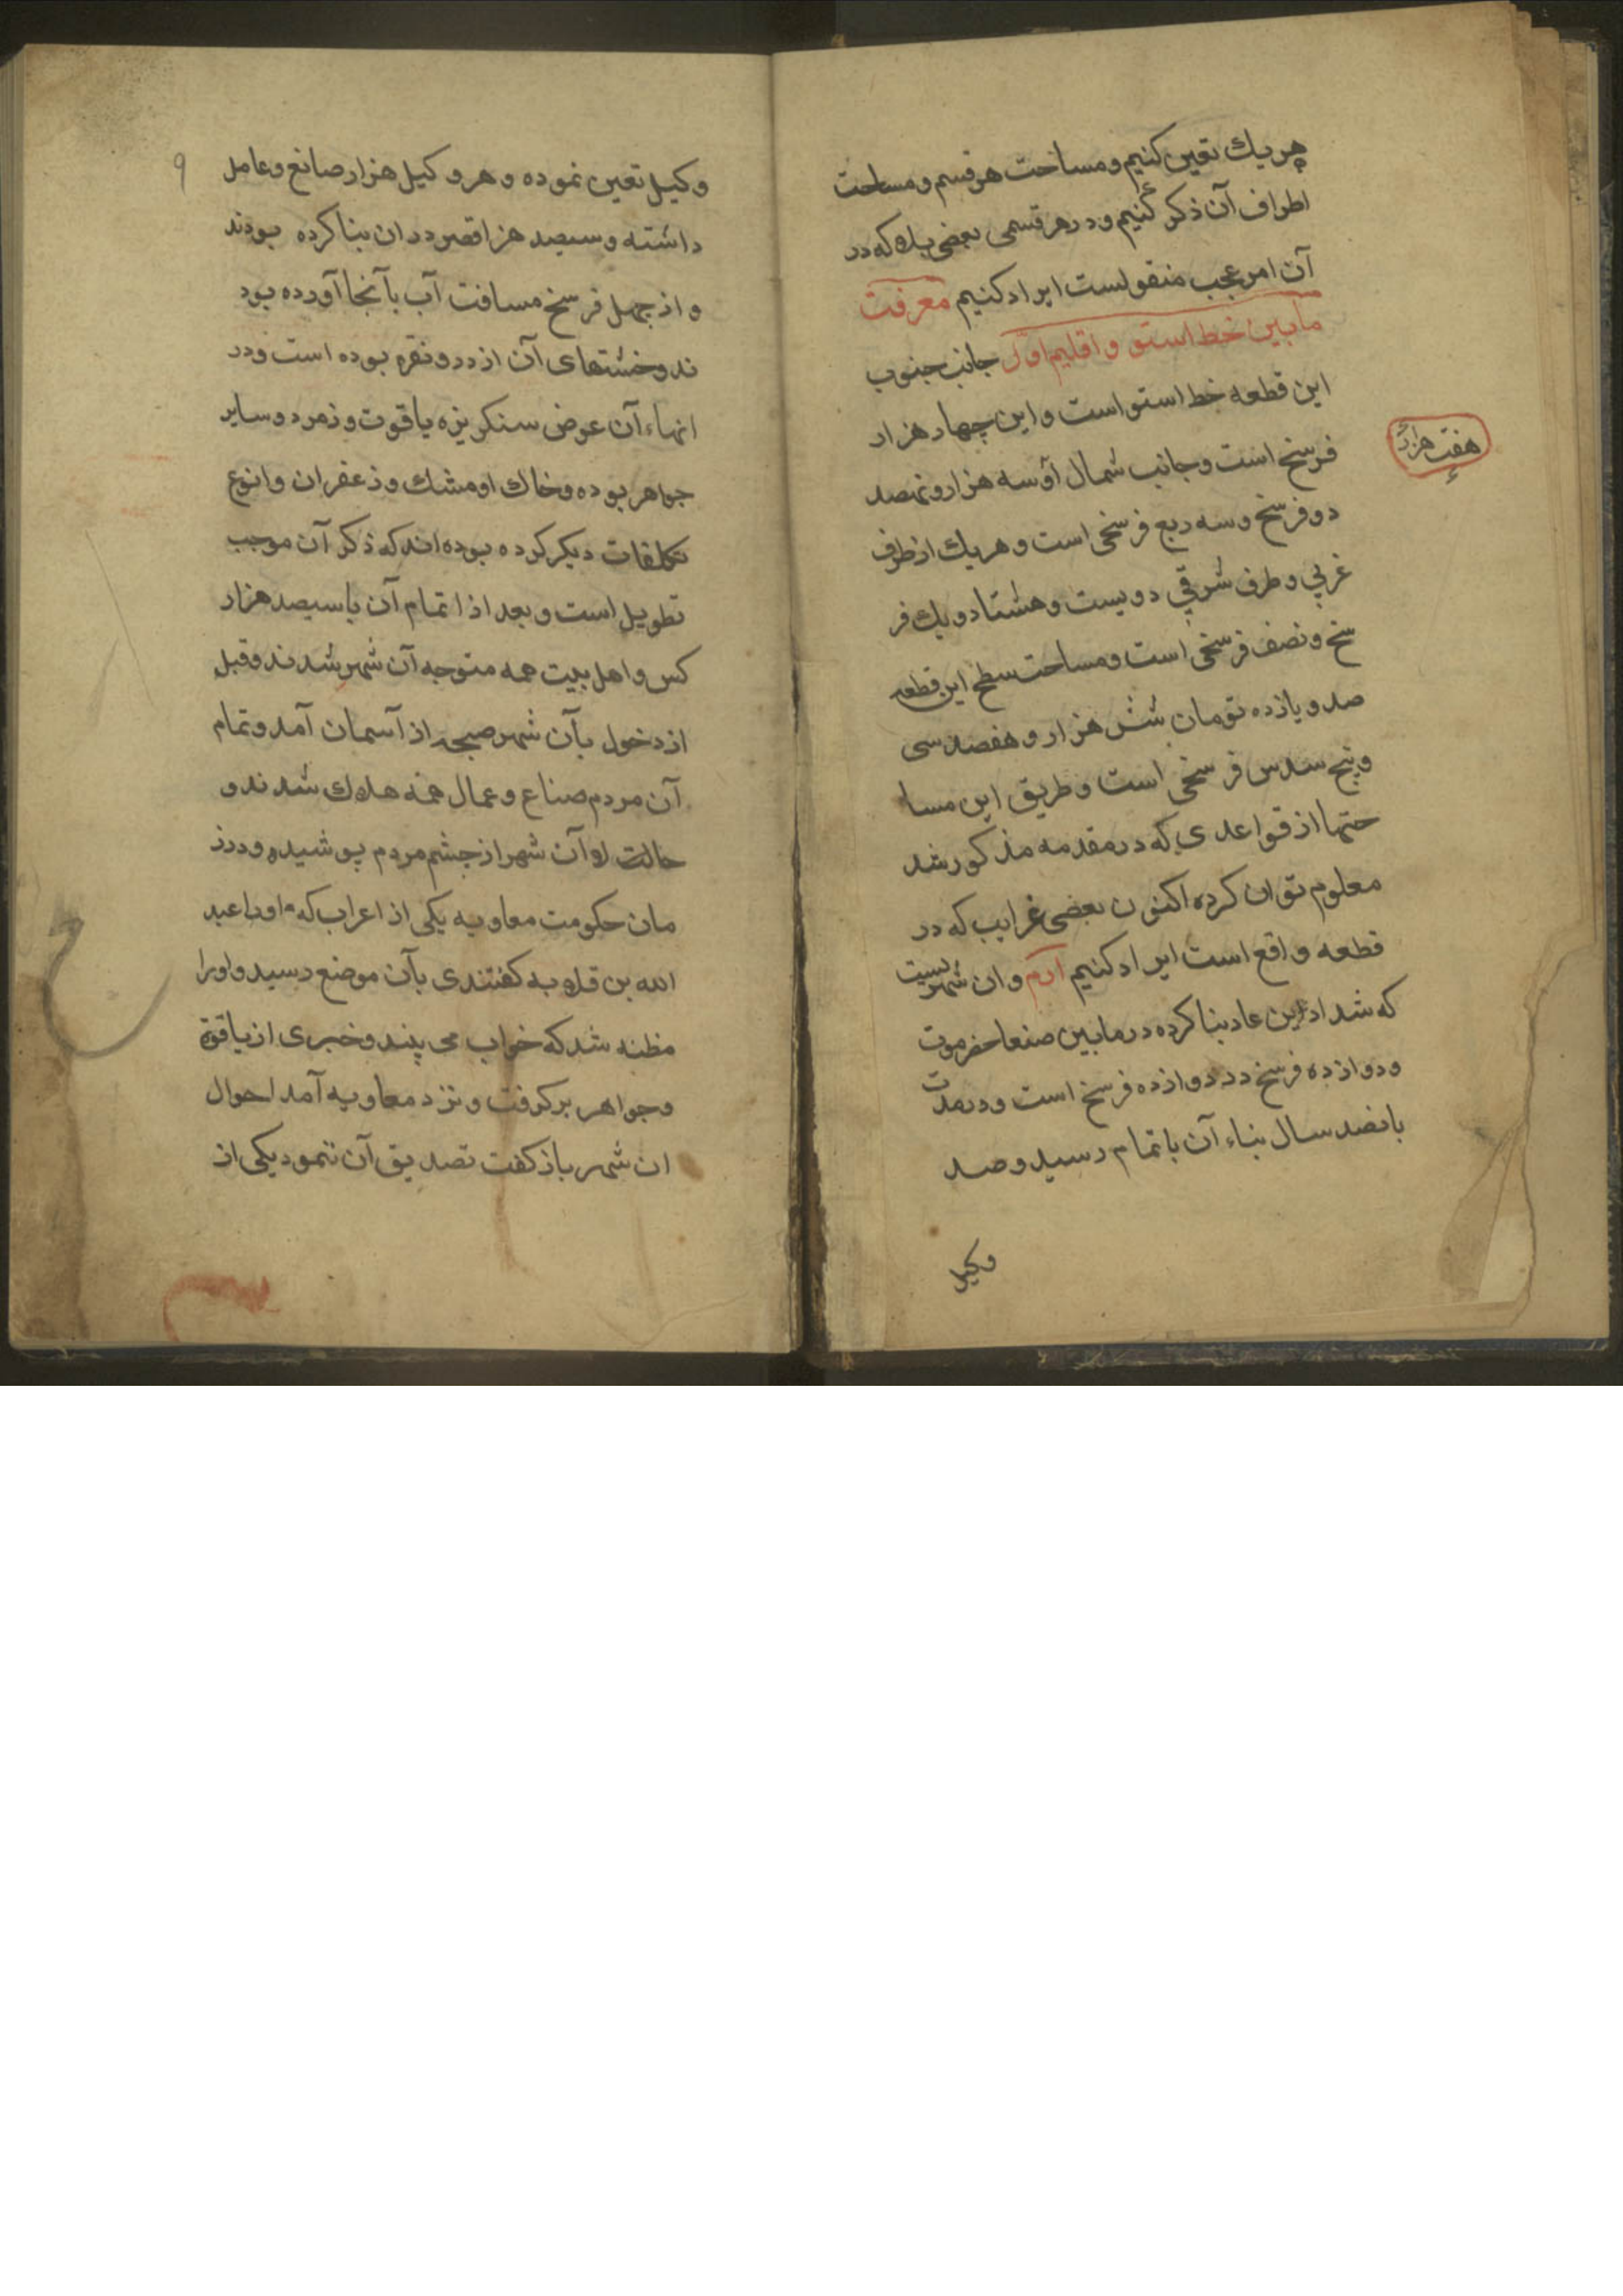 هر یك تعین کنیم و مساحت هر قسم و مساحت
اطراف آن ذکر کنیم و در هر قسمی بعضی بلاد که در
آن امر عجب منقولست ایراد کنیم معرفت
مابین خط استو و اقلیم اول جانب جنوب
این قطعه خط استواست و این چهار هزار
فرسخ است و جانب شمال او سه هزار و نهصد
هفت هزار
دو فرسخ و سه ربع فرسخی است و هر یك از طرف
غربی و طرف شرقی دویست و هشتاد و یك فر
سخ و نصف فرسخی است و مساحت سطح این قطعه
صد و یازده تومان شش هزار و هفصد سی
و پنج سدس فرسخی است و طریق این مسا
حتها از قواعدی که در مقدمه مذکور شد
معلوم توان کرده اکنون بعضی غرایب که در
قطعه واقع است ایراد کنیم ارم و ان شهریست
که شداد بن عاد بنا کرده در مابین صنعا حضرموت
و دوازده فرسخ در دوازده فرسخ است و در مدت
بانصد سال بناء آن باتمام رسید و صد
وکیل
۹
وکیل تعین نموده و هر وکیل هزار صانع و عامل
داشته و سیصد هزا قصر در ان بنا کرده بودند
و از چهل فرسخ مسافت آب بآنجا آورده بود
ند و خشتهای آن از در و نقره بوده است و در
انهاء آن عوض سنکریزه یاقوت و زمرد و سایر
جواهر بوده و خاك او مشك و زعفران و انوع
تکلفات دیکر کرده بوده اند که ذکر آن موجب
تطویل است و بعد از اتمام آن با سیصد هزار
کس و اهل بیت همه متوجه آن شهر شدند و قبل
از دخول بآن شهر صیحه از آسمان آمد و تمام
آن مردم صناع و عمال همه هلاك شدند و
حالت او آن شهر از چشم مردم پوشیده و درز
مان حکومت معاویه یکی از اعراب که اورا عبد
الله بن قلابه کفتندی بآن موضع رسید و اورا
مظنه شد که خواب می بیند و خبری از یاقوت
و جواهر برکرفت و نزد معاویه آمد احوال
ان شهر باز کفت تصدیق آن ننمود یکی از